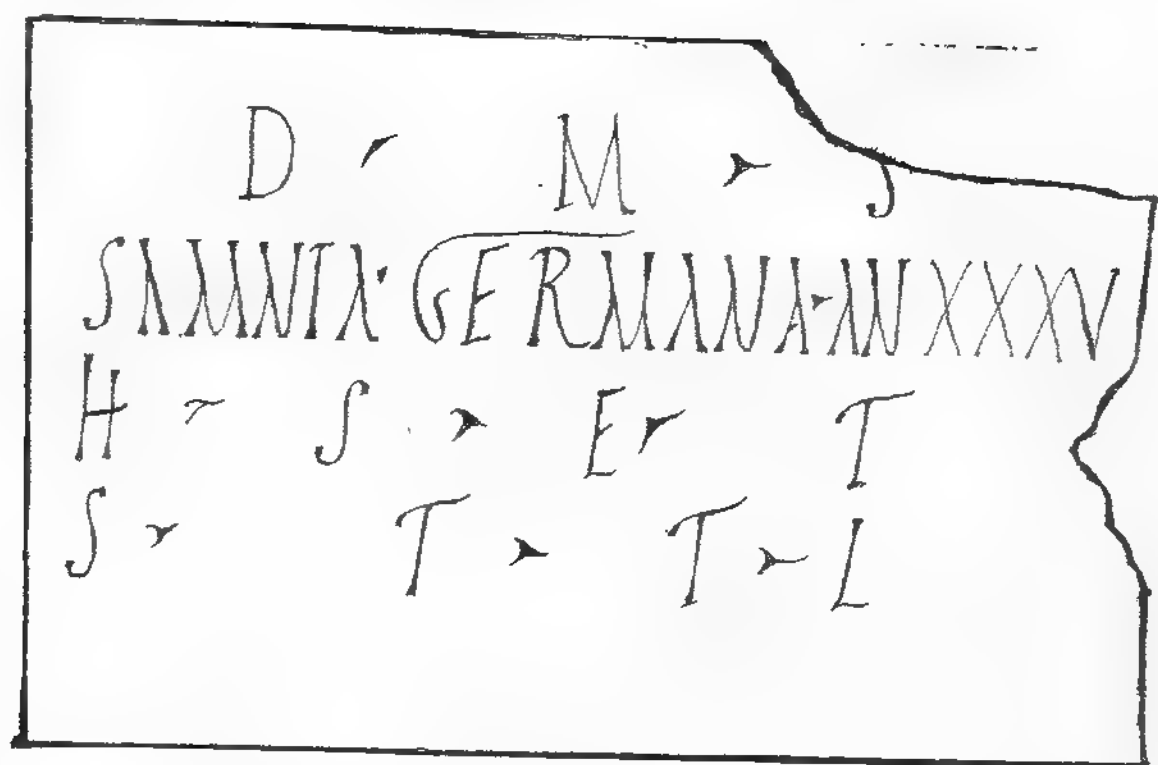 D · M · S
SAMNIA · GERMANA · AN XXXV
H · S · E · T
S · T · T · L